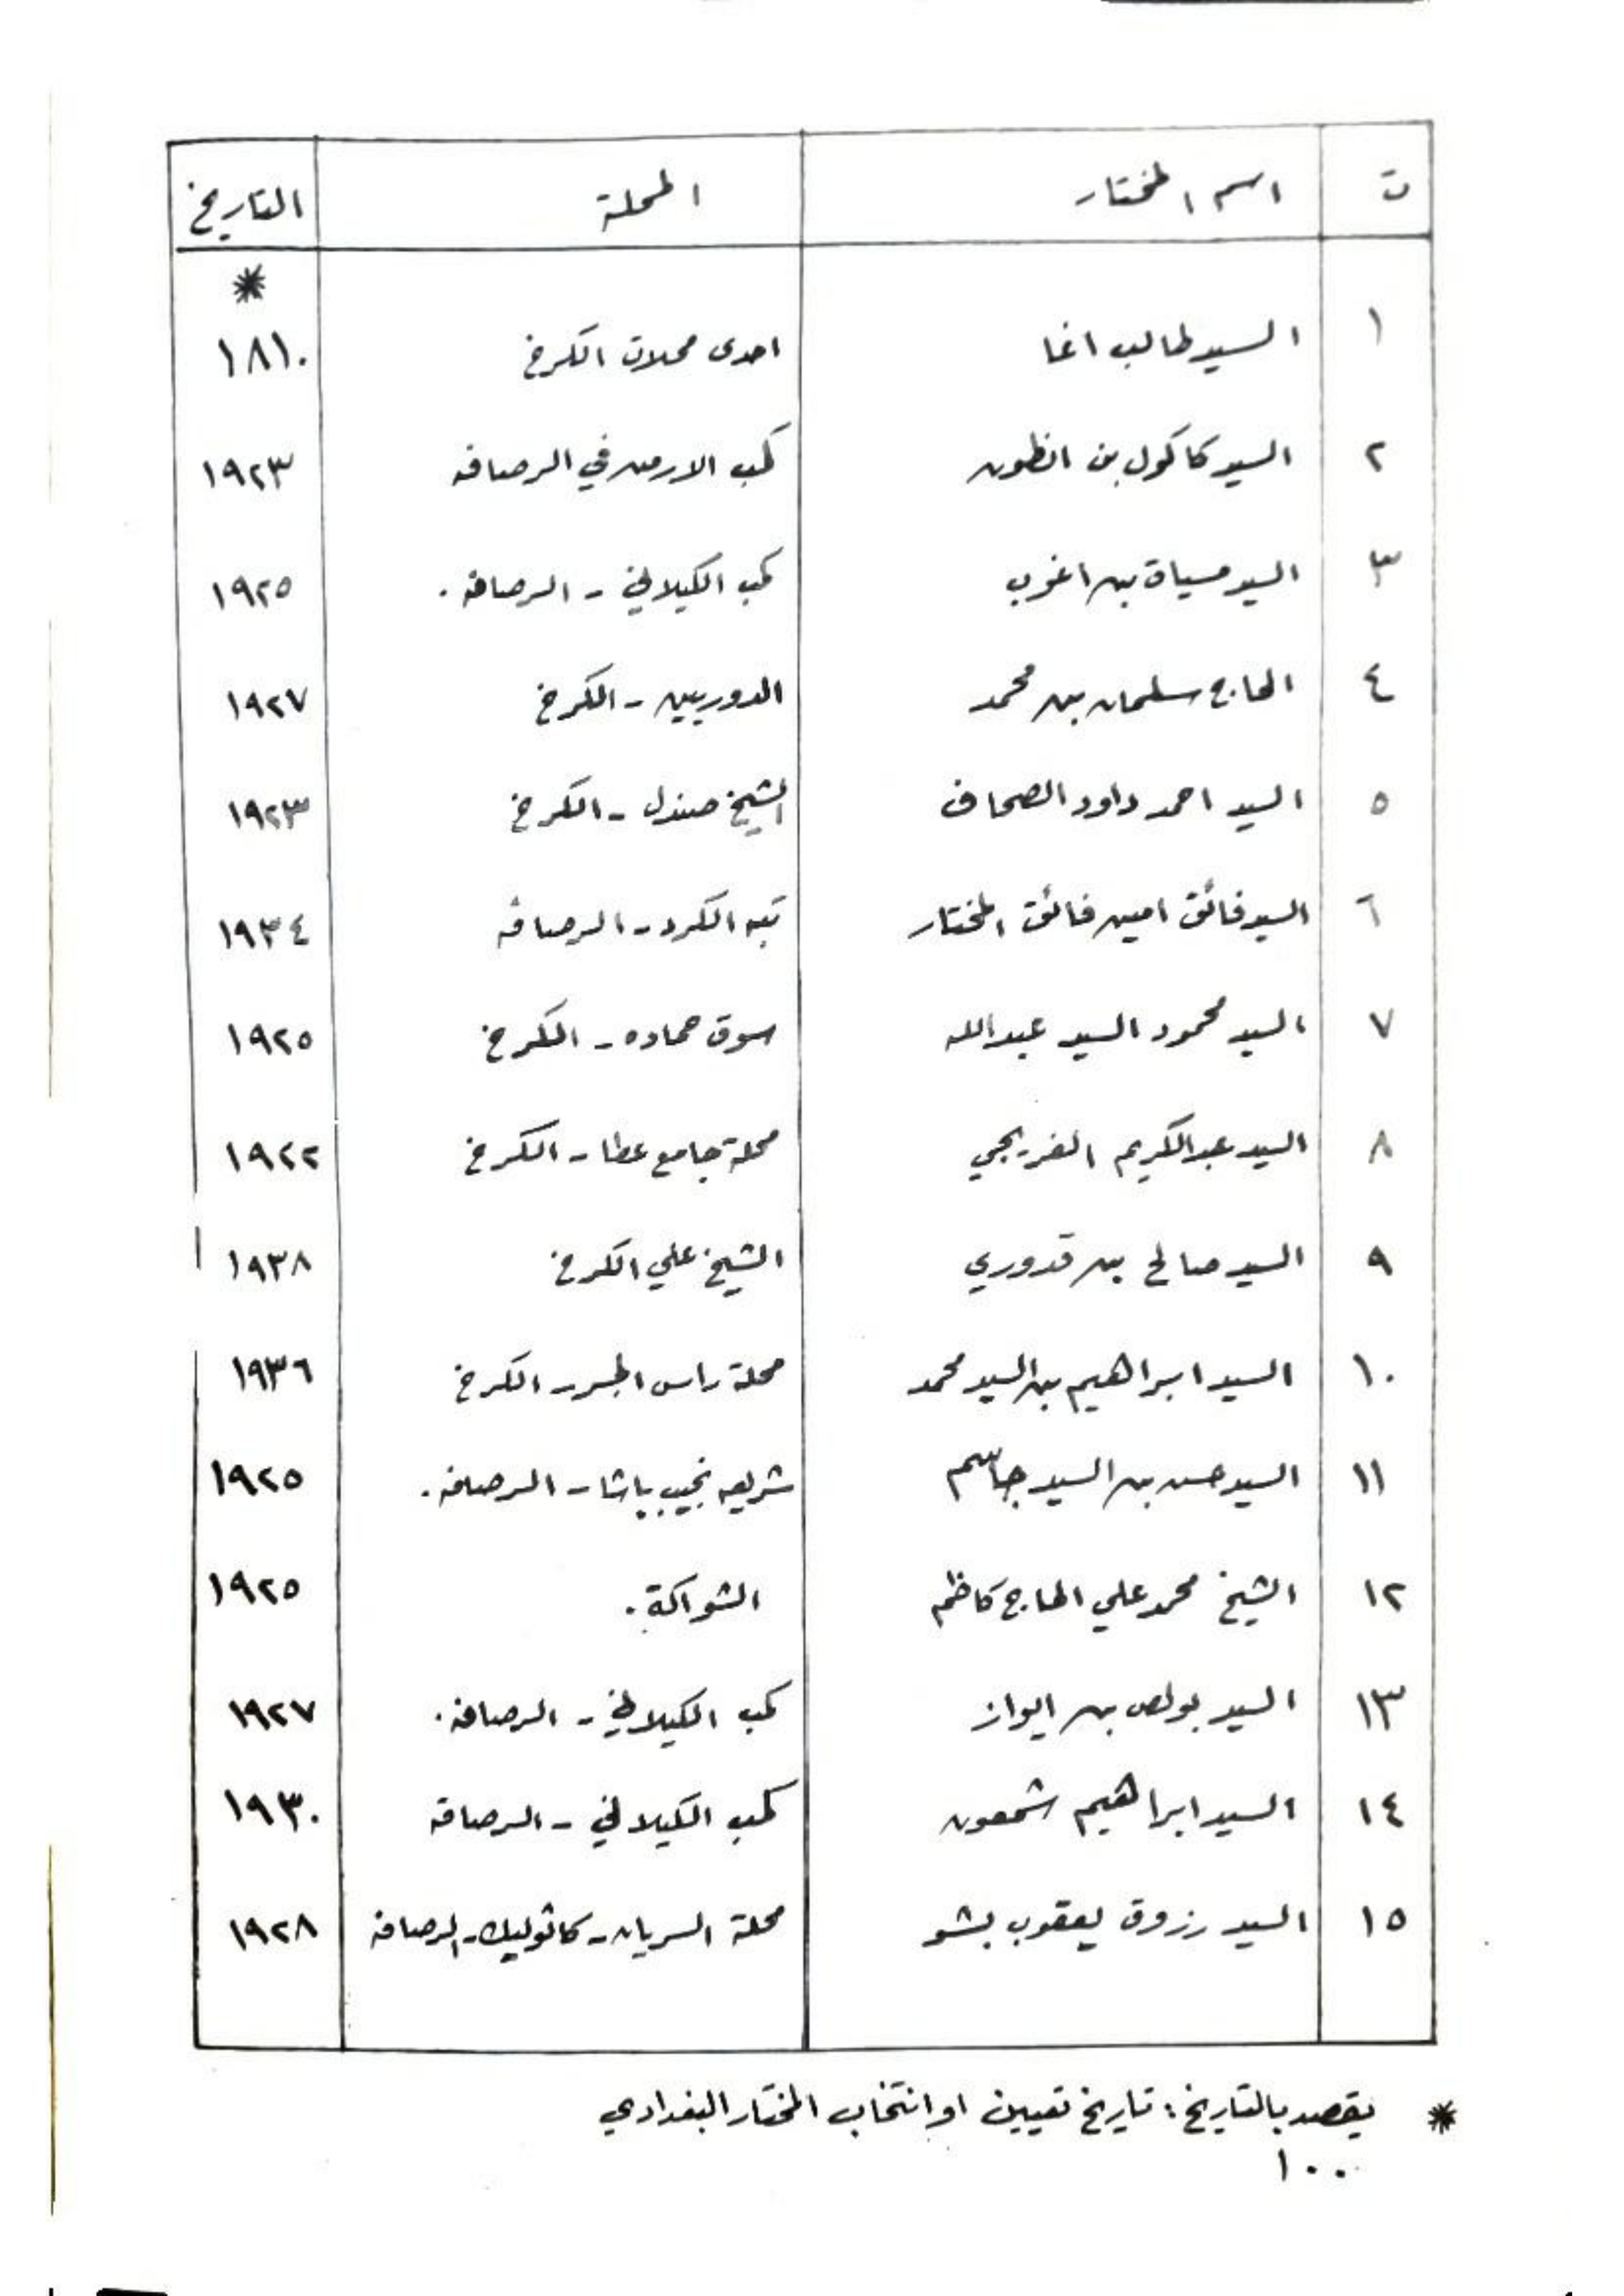 ت اسم المختار المحلة التاريخ
*
١ السيد طالب اغا احدى محلات الكرخ ١٨١٠
٢ السيد كاكول بن انطون كمب الارمن في الرصافه ١٩٢٣
٣ السيد مسياق بن اغوب كمب الكيلاني - الرصافه . ١٩٢٥
٤ الحاج سلمان بن محمد الدوريين - الكرخ ١٩٢٧
٥ السيد احمد داود الصحاف الشيخ صندل - الكرخ ١٩٢٣
٦ السيد فائق امين فائق المختار تبه الكرد - الرصافه ١٩٣٤
٧ السيد محمود السيد عبدالله سوق حماده - الكرخ ١٩٢٥
٨ السيد عبدالكريم الفريجي محلة جامع عطا - الكرخ ١٩٢٢
٩ السيد صالح بن قدوري الشيخ علي الكرخ ١٩٣٨
١٠ السيد ابراهيم بن السيد محمد محلة راس الجسر - الكرخ ١٩٣٦
١١ السيد حسن بن السيد جاسم شريعه نجيب باشا - الرصافه . ١٩٢٥
١٢ الشيخ محمد علي الحاج كاظم الشواكة . ١٩٢٥
١٣ السيد بولص بن ايواز كمب الكيلاني - الرصافه . ١٩٢٧
١٤ السيد ابراهيم شمعون كمب الكيلاني - الرصافه ١٩٣٠
١٥ السيد رزوق يعقوب بشو محلة السريان - كاثوليك - الرصافه ١٩٢٨
* يقصد بالتاريخ : تاريخ تعيين او انتخاب المختار البغدادي
١٠٠